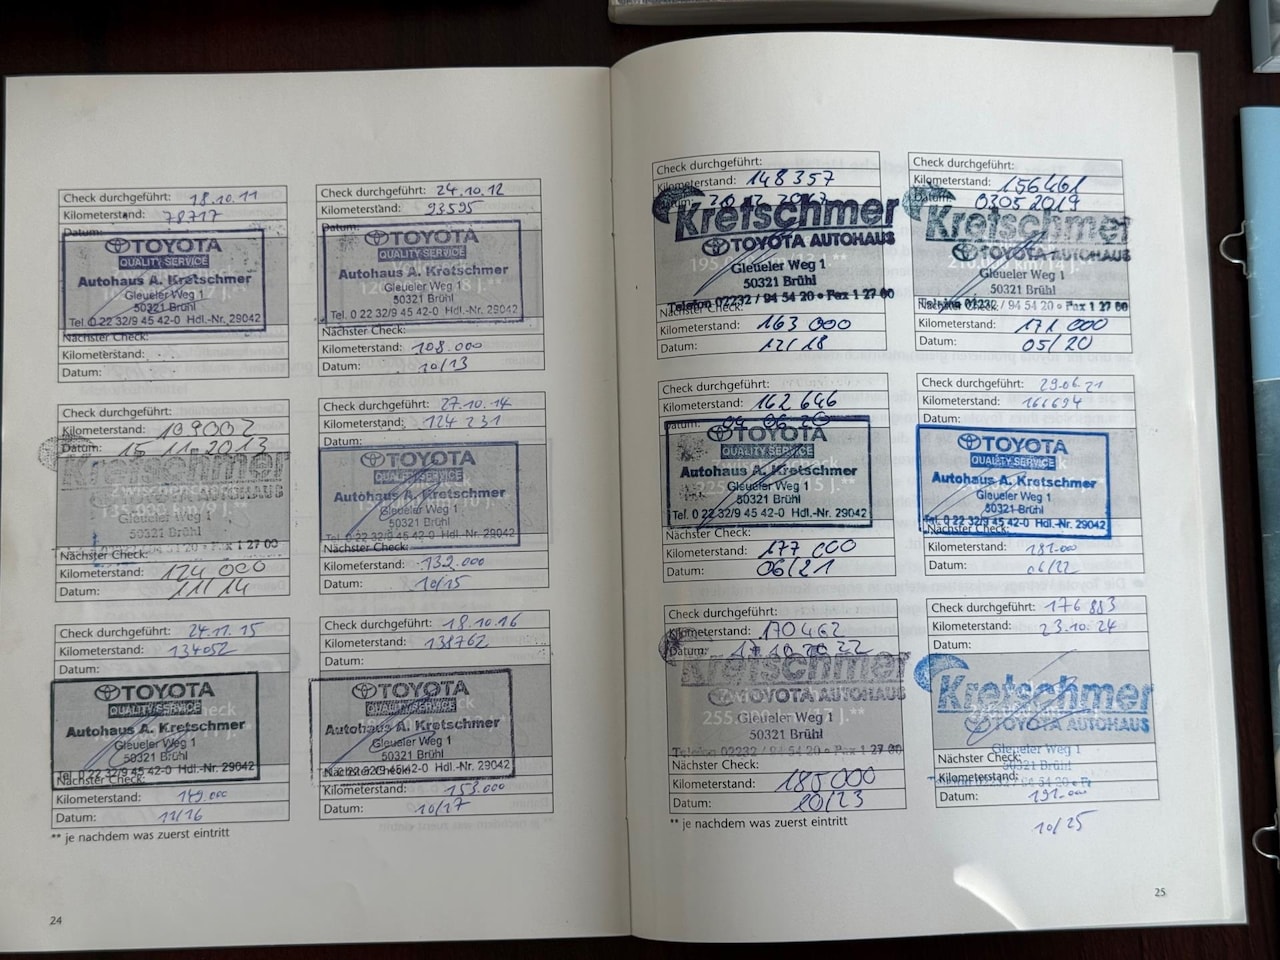 Check durchgeführt: 18.10.11
Kilometerstand: 78717
Datum:
TOYOTA
QUALITY SERVICE
Autohaus A. Kretschmer
Gleueler Weg 1
50321 Brühl
Tel. 0 22 32/9 45 42-0 Hdl.-Nr. 29042
Nächster Check:
Kilometerstand:
Datum:
Check durchgeführt: 24.10.12
Kilometerstand: 93595
Datum:
TOYOTA
QUALITY SERVICE
Autohaus A. Kretschmer
Gleueler Weg 1
50321 Brühl
Tel. 0 22 32/9 45 42-0 Hdl.-Nr. 29042
Nächster Check:
Kilometerstand: 108.000
Datum: 10/13
Check durchgeführt:
Kilometerstand: 109002
Datum: 15 11. 2013
Kretschmer
AUTOHAUS
135.000 km/9 J.**
Gleueler Weg 1
50321 Brühl
Nächster Check:
Kilometerstand: 124 000
Datum: 11/14
Check durchgeführt: 27.10.14
Kilometerstand: 124 231
Datum:
TOYOTA
QUALITY SERVICE
Autohaus A. Kretschmer
Gleueler Weg 1
50321 Brühl
Tel. 0 22 32/9 45 42-0 Hdl.-Nr. 29042
Nächster Check:
Kilometerstand: 139.000
Datum: 10/15
Check durchgeführt: 24.11.15
Kilometerstand: 134052
Datum:
TOYOTA
QUALITY SERVICE
Autohaus A. Kretschmer
Gleueler Weg 1
50321 Brühl
Tel. 0 22 32/9 45 42-0 Hdl.-Nr. 29042
Nächster Check:
Kilometerstand: 149.000
Datum: 11/16
Check durchgeführt: 18.10.16
Kilometerstand: 138762
Datum:
TOYOTA
QUALITY SERVICE
Autohaus A. Kretschmer
Gleueler Weg 1
50321 Brühl
Tel. 0 22 32/9 45 42-0 Hdl.-Nr. 29042
Nächster Check:
Kilometerstand: 153.000
Datum: 10/17
** je nachdem was zuerst eintritt
24
Check durchgeführt:
Kilometerstand: 148 357
Datum:
Kretschmer
TOYOTA AUTOHAUS
Gleueler Weg 1
50321 Brühl
Telefon 02232 / 94 54 20 • Fax 1 27 00
Nächster Check:
Kilometerstand: 163 000
Datum: 12/18
Check durchgeführt:
Kilometerstand: 156461
Datum: 03 05 2019
Kretschmer
TOYOTA AUTOHAUS
Gleueler Weg 1
50321 Brühl
Telefon 02232 / 94 54 20 • Fax 1 27 00
Nächster Check:
Kilometerstand: 171 000
Datum: 05/20
Check durchgeführt:
Kilometerstand: 162 646
Datum: 06 20
TOYOTA
QUALITY SERVICE
Autohaus A. Kretschmer
Gleueler Weg 1
50321 Brühl
Tel. 0 22 32/9 45 42-0 Hdl.-Nr. 29042
Nächster Check:
Kilometerstand: 177 000
Datum: 06/21
Check durchgeführt: 29.06.21
Kilometerstand: 166694
Datum:
TOYOTA
QUALITY SERVICE
Autohaus A. Kretschmer
Gleueler Weg 1
50321 Brühl
Tel. 0 22 32/9 45 42-0 Hdl.-Nr. 29042
Nächster Check:
Kilometerstand: 181.000
Datum: 06/22
Check durchgeführt:
Kilometerstand: 170462
Datum: 10 2022
Kretschmer
TOYOTA AUTOHAUS
255.000 km/17 J.**
Gleueler Weg 1
50321 Brühl
Telefon 02232 / 94 54 20 • Fax 1 27 00
Nächster Check:
Kilometerstand: 185000
Datum: 10/23
Check durchgeführt: 176 883
Kilometerstand: 23.10.24
Datum:
Kretschmer
TOYOTA AUTOHAUS
Gleueler Weg 1
50321 Brühl
Nächster Check:
Kilometerstand:
Datum: 191.000
10/25
** je nachdem was zuerst eintritt
25